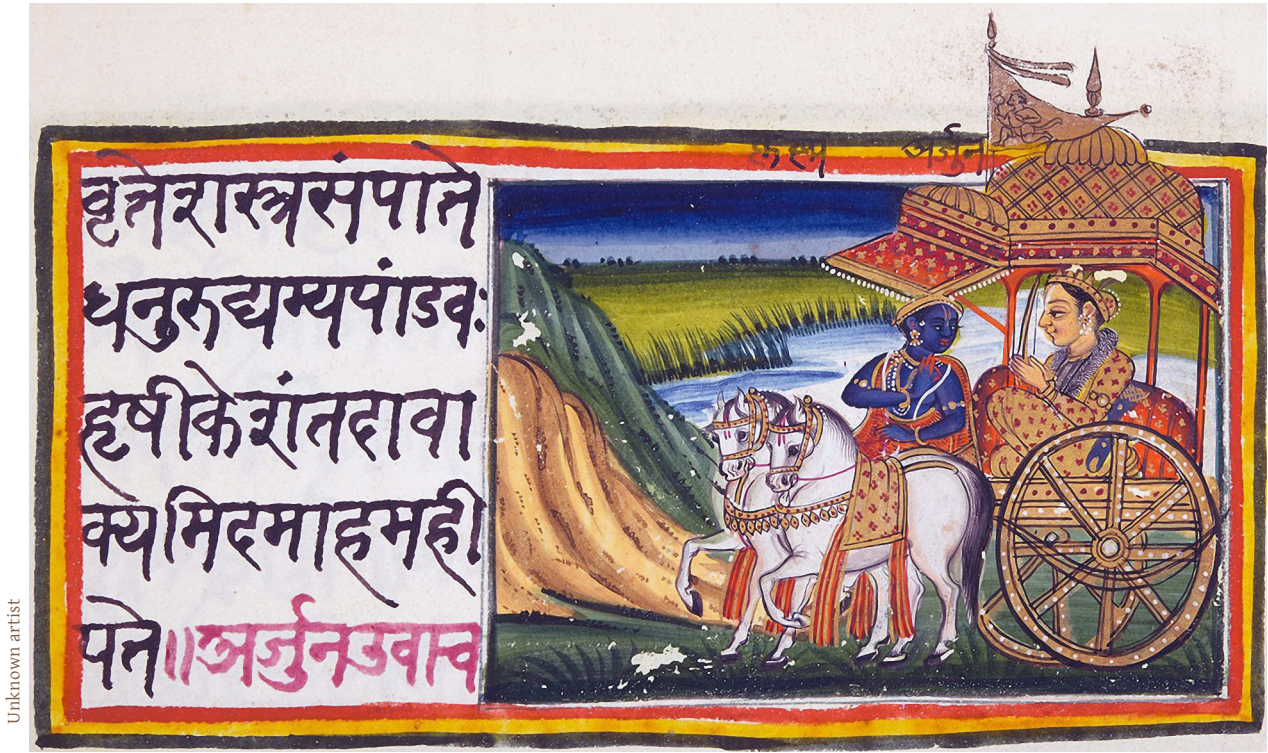 अर्जुन
वृत्तेशस्त्रसंपाते
धनुरुद्यम्यपांडवः
हृषीकेशंतदावा
क्यमिदमाहमही
पते॥अर्जुनउवाच
Unknown artist